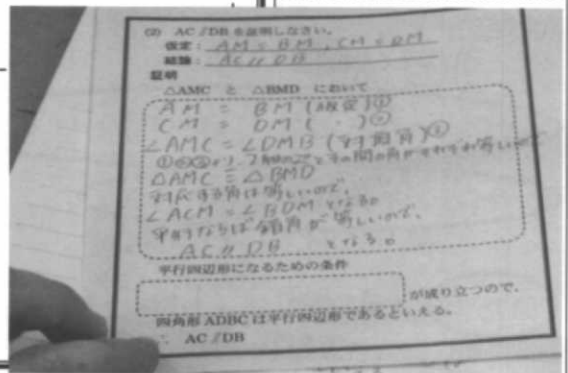 (2) AC∥DBを証明しなさい。
仮定: AM = BM, CM = DM
結論: AC∥DB
証明
△AMC と △BMDにおいて
AM = BM (仮定)①
CM = DM ( 〃 )②
∠AMC = ∠DMB (対頂角)③
①②③より2組の辺とその間の角がそれぞれ等しいので
△AMC≡△BMD
対応する角は等しいので、
∠ACM = ∠BDMとなる。
平行ならば錯角が等しいので、
AC∥DB となる。
平行四辺形になるための条件
が成り立つので、
四角形ADBCは平行四辺形であるといえる。
∴ AC∥DB